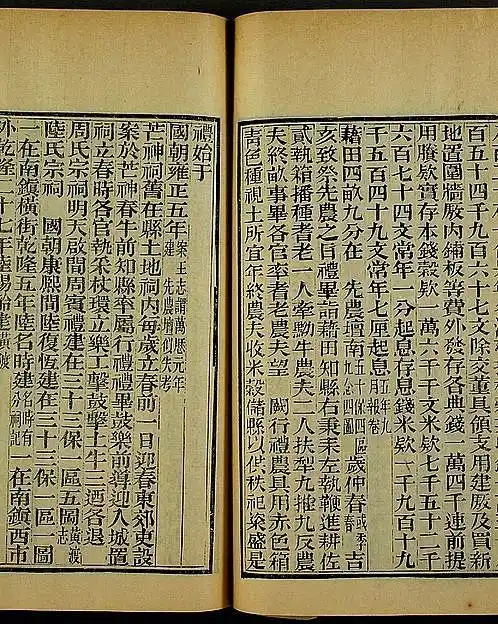 百五十四千九百六十七文除交董具領支用建廠及買新
地置圍牆廠內鋪板等費外發存各典錢一萬四千連前提
用賸欵實存本錢穀欵一萬六千千文米欵七千五十二千
六百七十四文常年一分起息存息錢米欵一千九百十九
千五百四十九文常年七厘起息五年九月報卷
藉田四畝九分在 先農壇南九十保四區念四圖歲仲春或季春吉
亥致祭先農之旨禮畢詣藉田知縣右秉耒左執鞭進耕佐
貳執箱播種耆老一人牽牛農夫二人扶犁九推九反農
夫終畝事畢各官率耆老農夫望 闕行禮農具用赤色箱
青色種視土所宜年終農夫收米穀儲縣以供秩祀粢盛是
禮始于
國朝雍正五年案王志謂萬縣元年建 先農壇似失考
芒神祠舊在縣土地祠內每歲立春前一日迎春東郊東設
案於芒神春牛前知縣率屬行禮禮畢鼓樂前導迎入城置
祠立春時各官執采杖環立樂工擊鼓擊土牛三匝各退
周氏宗祠明天啟間周賓禮建在三十三保一區五圖黃渡志
陸氏宗祠 國朝康熙間陸復恆建在三十三保一區一圖
一在南鎮橫街乾隆五年陸名時建名時有分祠記一在南鎮西市
外乾隆二十七年陸錫貽建黃渡